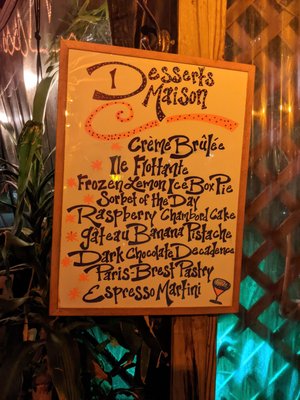 Desserts
Maison
Crème Brûlée
Ile Flottante
Frozen Lemon Ice Box Pie
Sorbet of the Day
Raspberry Chambord Cake
gâteau Banana Pistache
Dark Chocolate Decadence
Paris-Brest Pastry
Espresso Martini